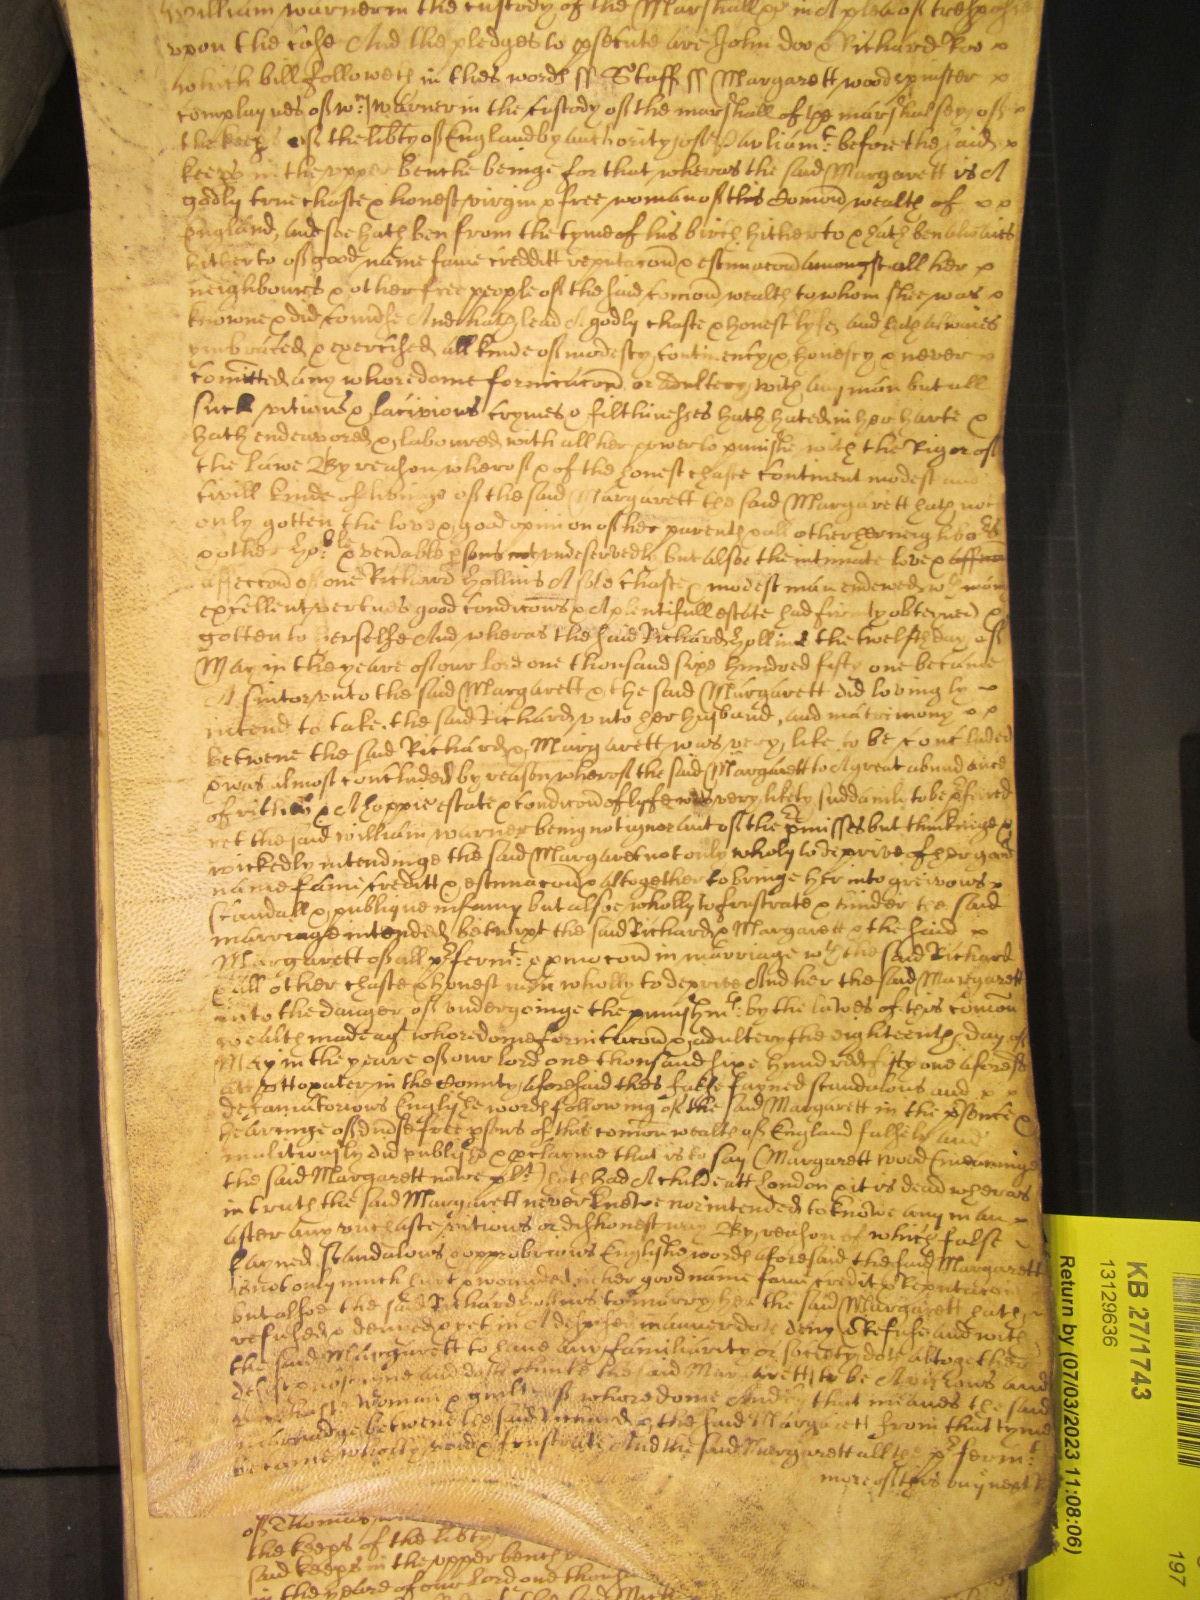 William Warner in the custody of the Marshall &c in A plea of trespasse
upon the case And the pledges to psecute are John Doo & Richard Roo
which bill followeth in theis words ss Staff ss Margarett wood spinster
complaynes of Wm: Warner in the custody of the marshall of the marshalsey of
the keeps of the libty of England by authority of Parliamt: before the said
keeps in the upper benche beinge for that wheras the said Margarett is A
godly true chaste & honest virgin & free woman of this Comon wealth of
England, and soe hath ben from the tyme of his birth hitherto & hath ben alwaies
hitherto of good name fame creditt reputacon & estimacon amongst all her
neighbours & other free people of the said comon wealth to whom shee was
knowne & did converse And hath lead A godly chaste & honest lyfe, and hath alwaies
ymbraced & exercised all kinde of modesty, continency, & honesty & never
comitted any whoredome fornicacon or adultery with any man but all
such vitious & lacivious crymes & filthinesses hath hated in her harte &
hath endevored & laboured with all her power to punishe with the Rigor of
the lawe By reason wherof & of the honest chaste continent modest and
civill kinde of livinge of the said Margarett the said Margarett hath not
only gotten the love & good opinion of her parents & all other her neighbors
& other & venable psons not undeservedly but alsoe the intimate love &
affeccon of one Richard Hollins A sole chaste & modest man endewed wth many
excellent vertues good condicons & A plentifull estate had firmly obteyned &
gotten to herselfe And wheras the said Richard Hollins the twelfth day of
May in the yeare of our lord one thousand sixe hundred fifty one became
A suitor unto the said Margarett & the said Margarett did lovingly
intend to take the said Richard unto her husband, and matrimony
betwene the said Richard & Margarett was very like to be concluded
& was almost concluded by reason wherof the said Margarett to A great abundance
of riches & A happie estate & condicon of lyfe was very likely suddainly to be pferred
yet the said William Warner being not ignorant of the pmisses but thinkinge &
wickedly intendinge the said Margaret not only wholy to deprive of her good
name fame creditt & estimacon & altogether to bringe her into greivous
scandall & publique infamy but alsoe wholly to frustrate & hinder the said
marriage intended betwixt the said Richard & Margarett & the said
Margarett of all pferment & pmocon in marriage wth the said Richard
& all other chaste & honest men wholly to deprive And her the said Margarett
into the danger of undergoinge the punishmt: by the lawes of this comon
wealth made agt whoredome fornicacon & adultery the eighteenth day of
May in the yeare of our lord one thousand sixe hundred fifty one aforesd
att Uttoxater in the County aforesaid theis false fayned scandalous and
defamatorious Englishe words following of the said Margarett in the psence &
hearinge of divse free psons of this comon wealth of England falsely and
malitiously did publish & pclayme that is to say (Margarett Wood (meaninge
the said Margarett nowe plt) hath had A childe att London & it is dead wheras
in truth the said Margarett never knewe nor intended to knowe any man
after any unchaste, vitious or dishonest way By reason of which false
fayned scandalous & opprobrious Englishe words aforesaid the said Margarett
is not only much hurt & wounded in her good name fame credit & Reputacon
but alsoe the said Richard Hollins to marry her the said Margarett hath
refused & denied & yet in A manner doth deny & Refuse and with
the said Margarett to have any familiarity or society doth altogether
and doth the said Margarett to be A vitious and
unchaste woman & guilty of whoredome And by that meanes the said
marriadge betwene the said Richard & the said Margarett from that tyme
became wholly void & frustrate And the said Margarett all the pfermt:
more of this buy next
of Thomas
the keeps of the libty
said keeps in the upper bench
in the yeare of our lord one thous
KB 27/1743
13129636
Return by (07/03/2023 11:08:06)
197